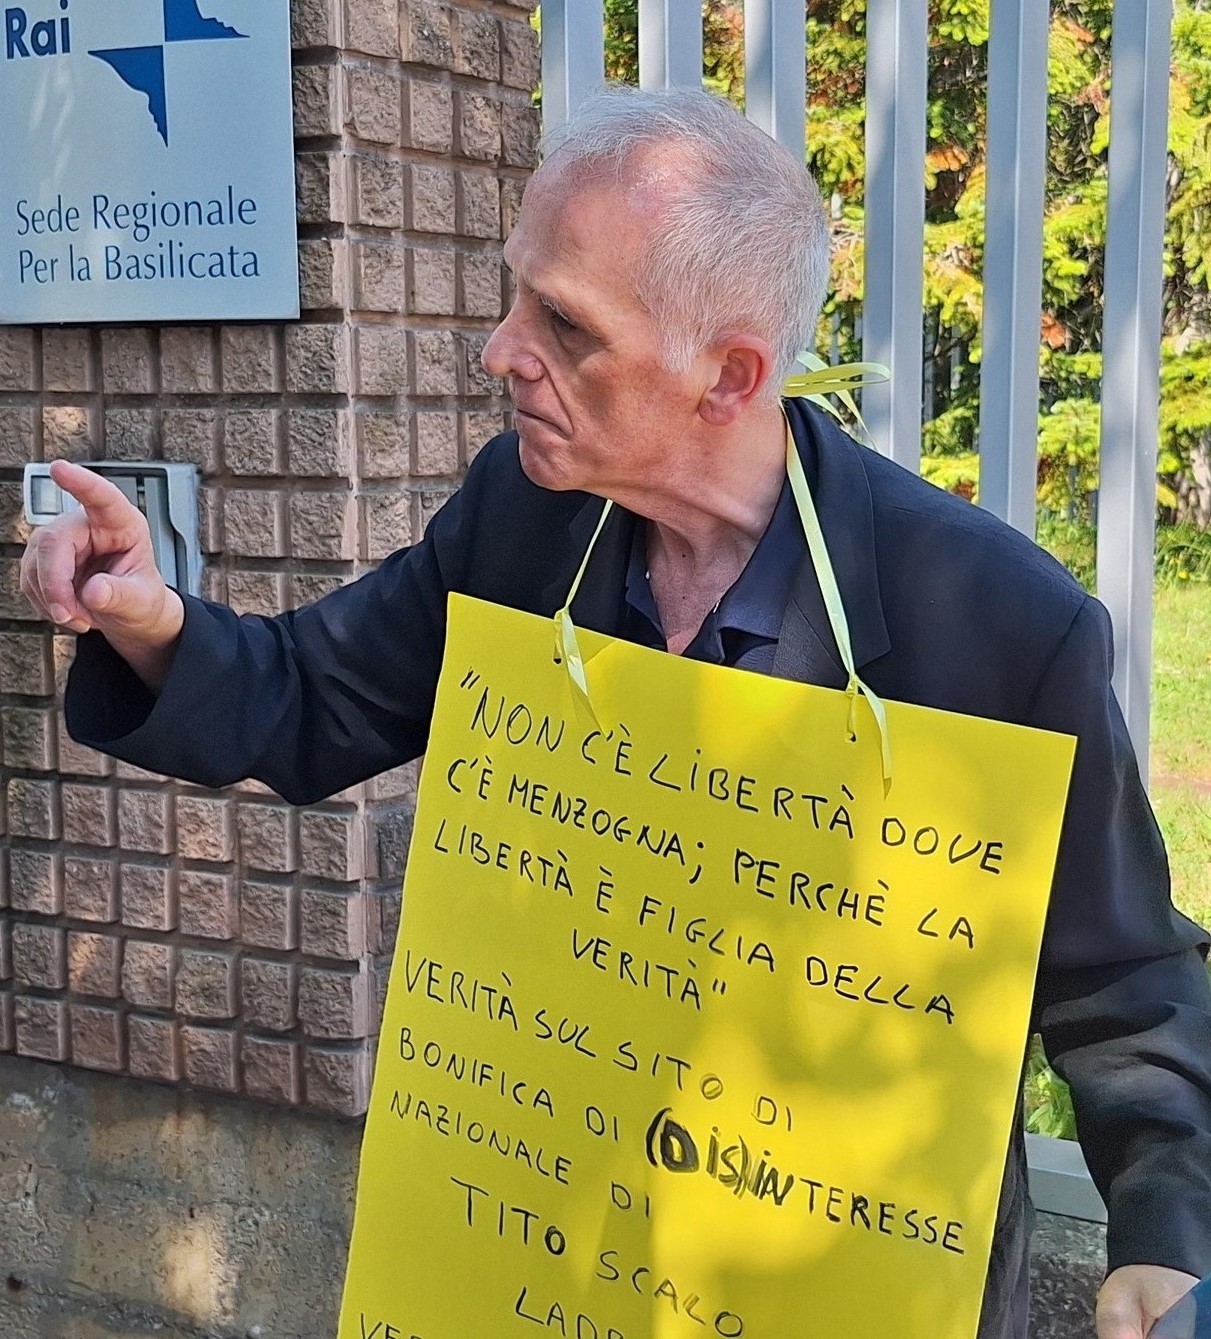 Rai
Sede Regionale
Per la Basilicata
"NON C'È LIBERTÀ DOVE
C'È MENZOGNA; PERCHÈ LA
LIBERTÀ È FIGLIA DELLA
VERITÀ"
VERITÀ SUL SITO DI
BONIFICA DI (DIS)INTERESSE
NAZIONALE DI
TITO SCALO